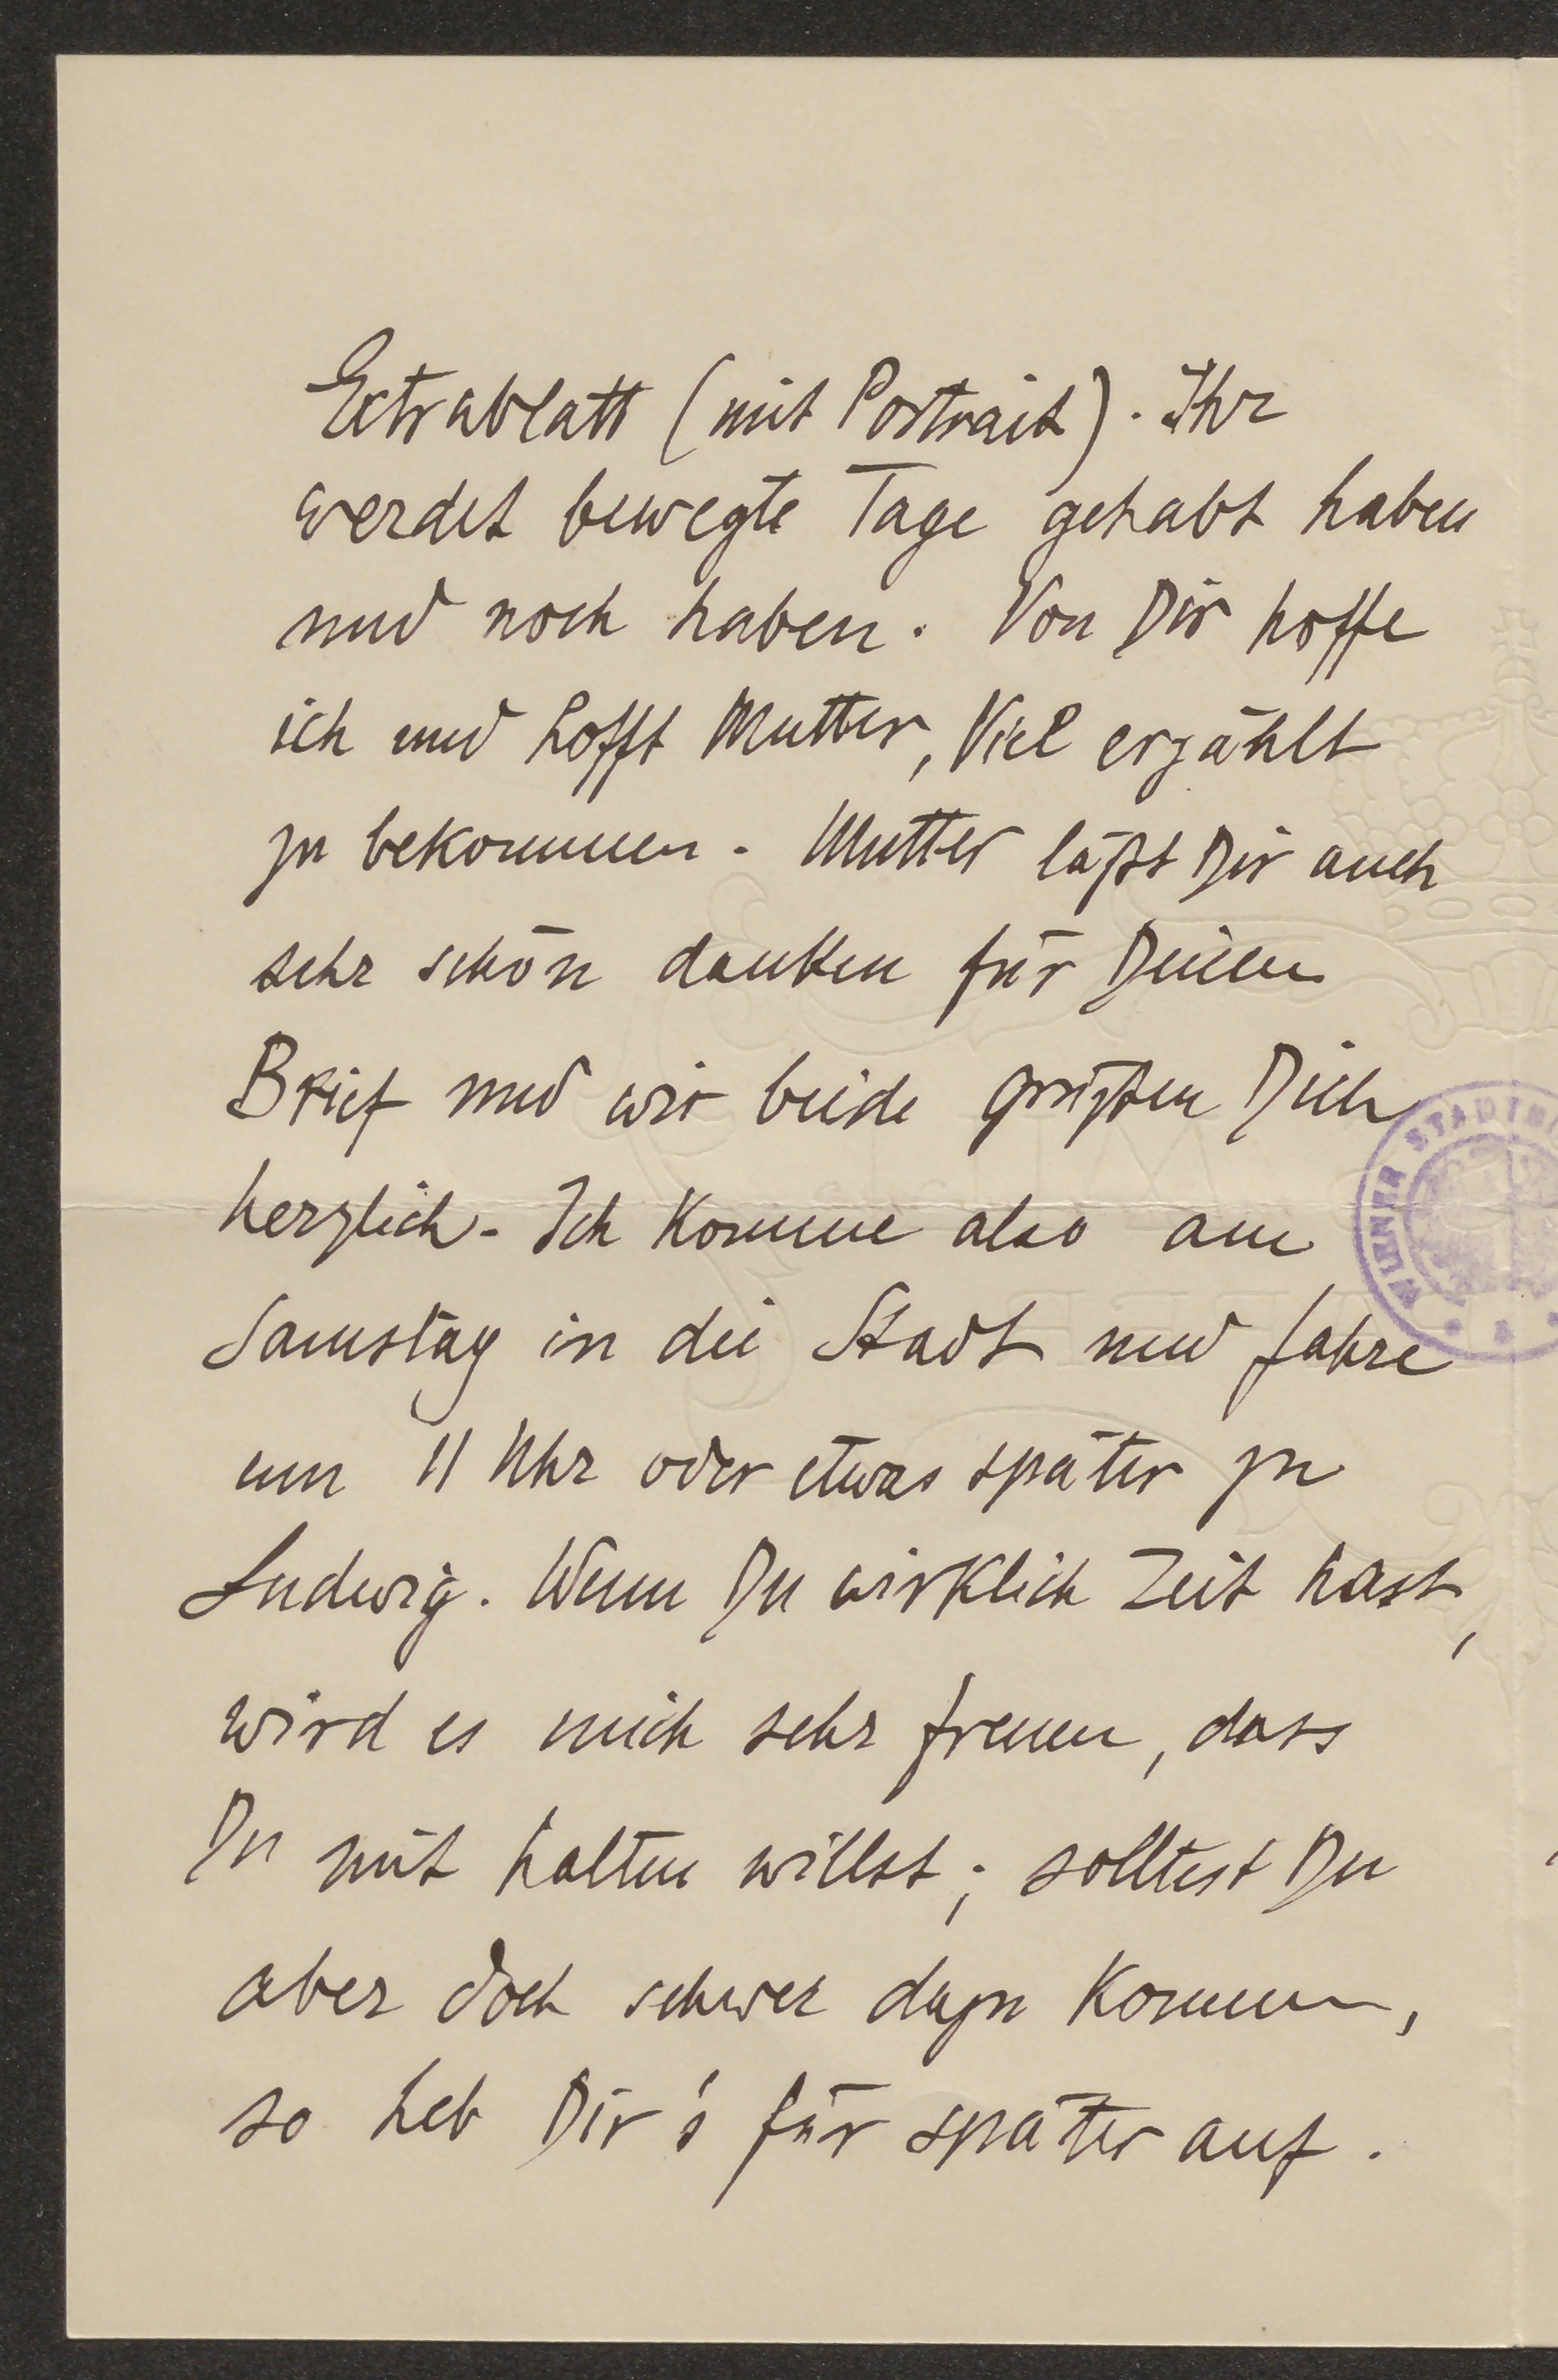 Extrablatt (mit Portrait). Ihr
werdet bewegte Tage gehabt haben
und noch haben. Von Dir hoffe
ich und hofft Mutter, Viel erzählt
zu bekommen. Mutter läßt Dir auch
sehr schön danken für Deinen
Brief und wir beide grüßen Dich
herzlich. Ich komme also am
Samstag in die Stadt und fahre
um 11 Uhr oder etwas später zu
Ludwig. Wenn Du wirklich Zeit hast,
wird es mich sehr freuen, dass
Du mit halten willst; solltest Du
aber doch schwer dazu kommen,
so heb Dir's für später auf.
WIENER STADT